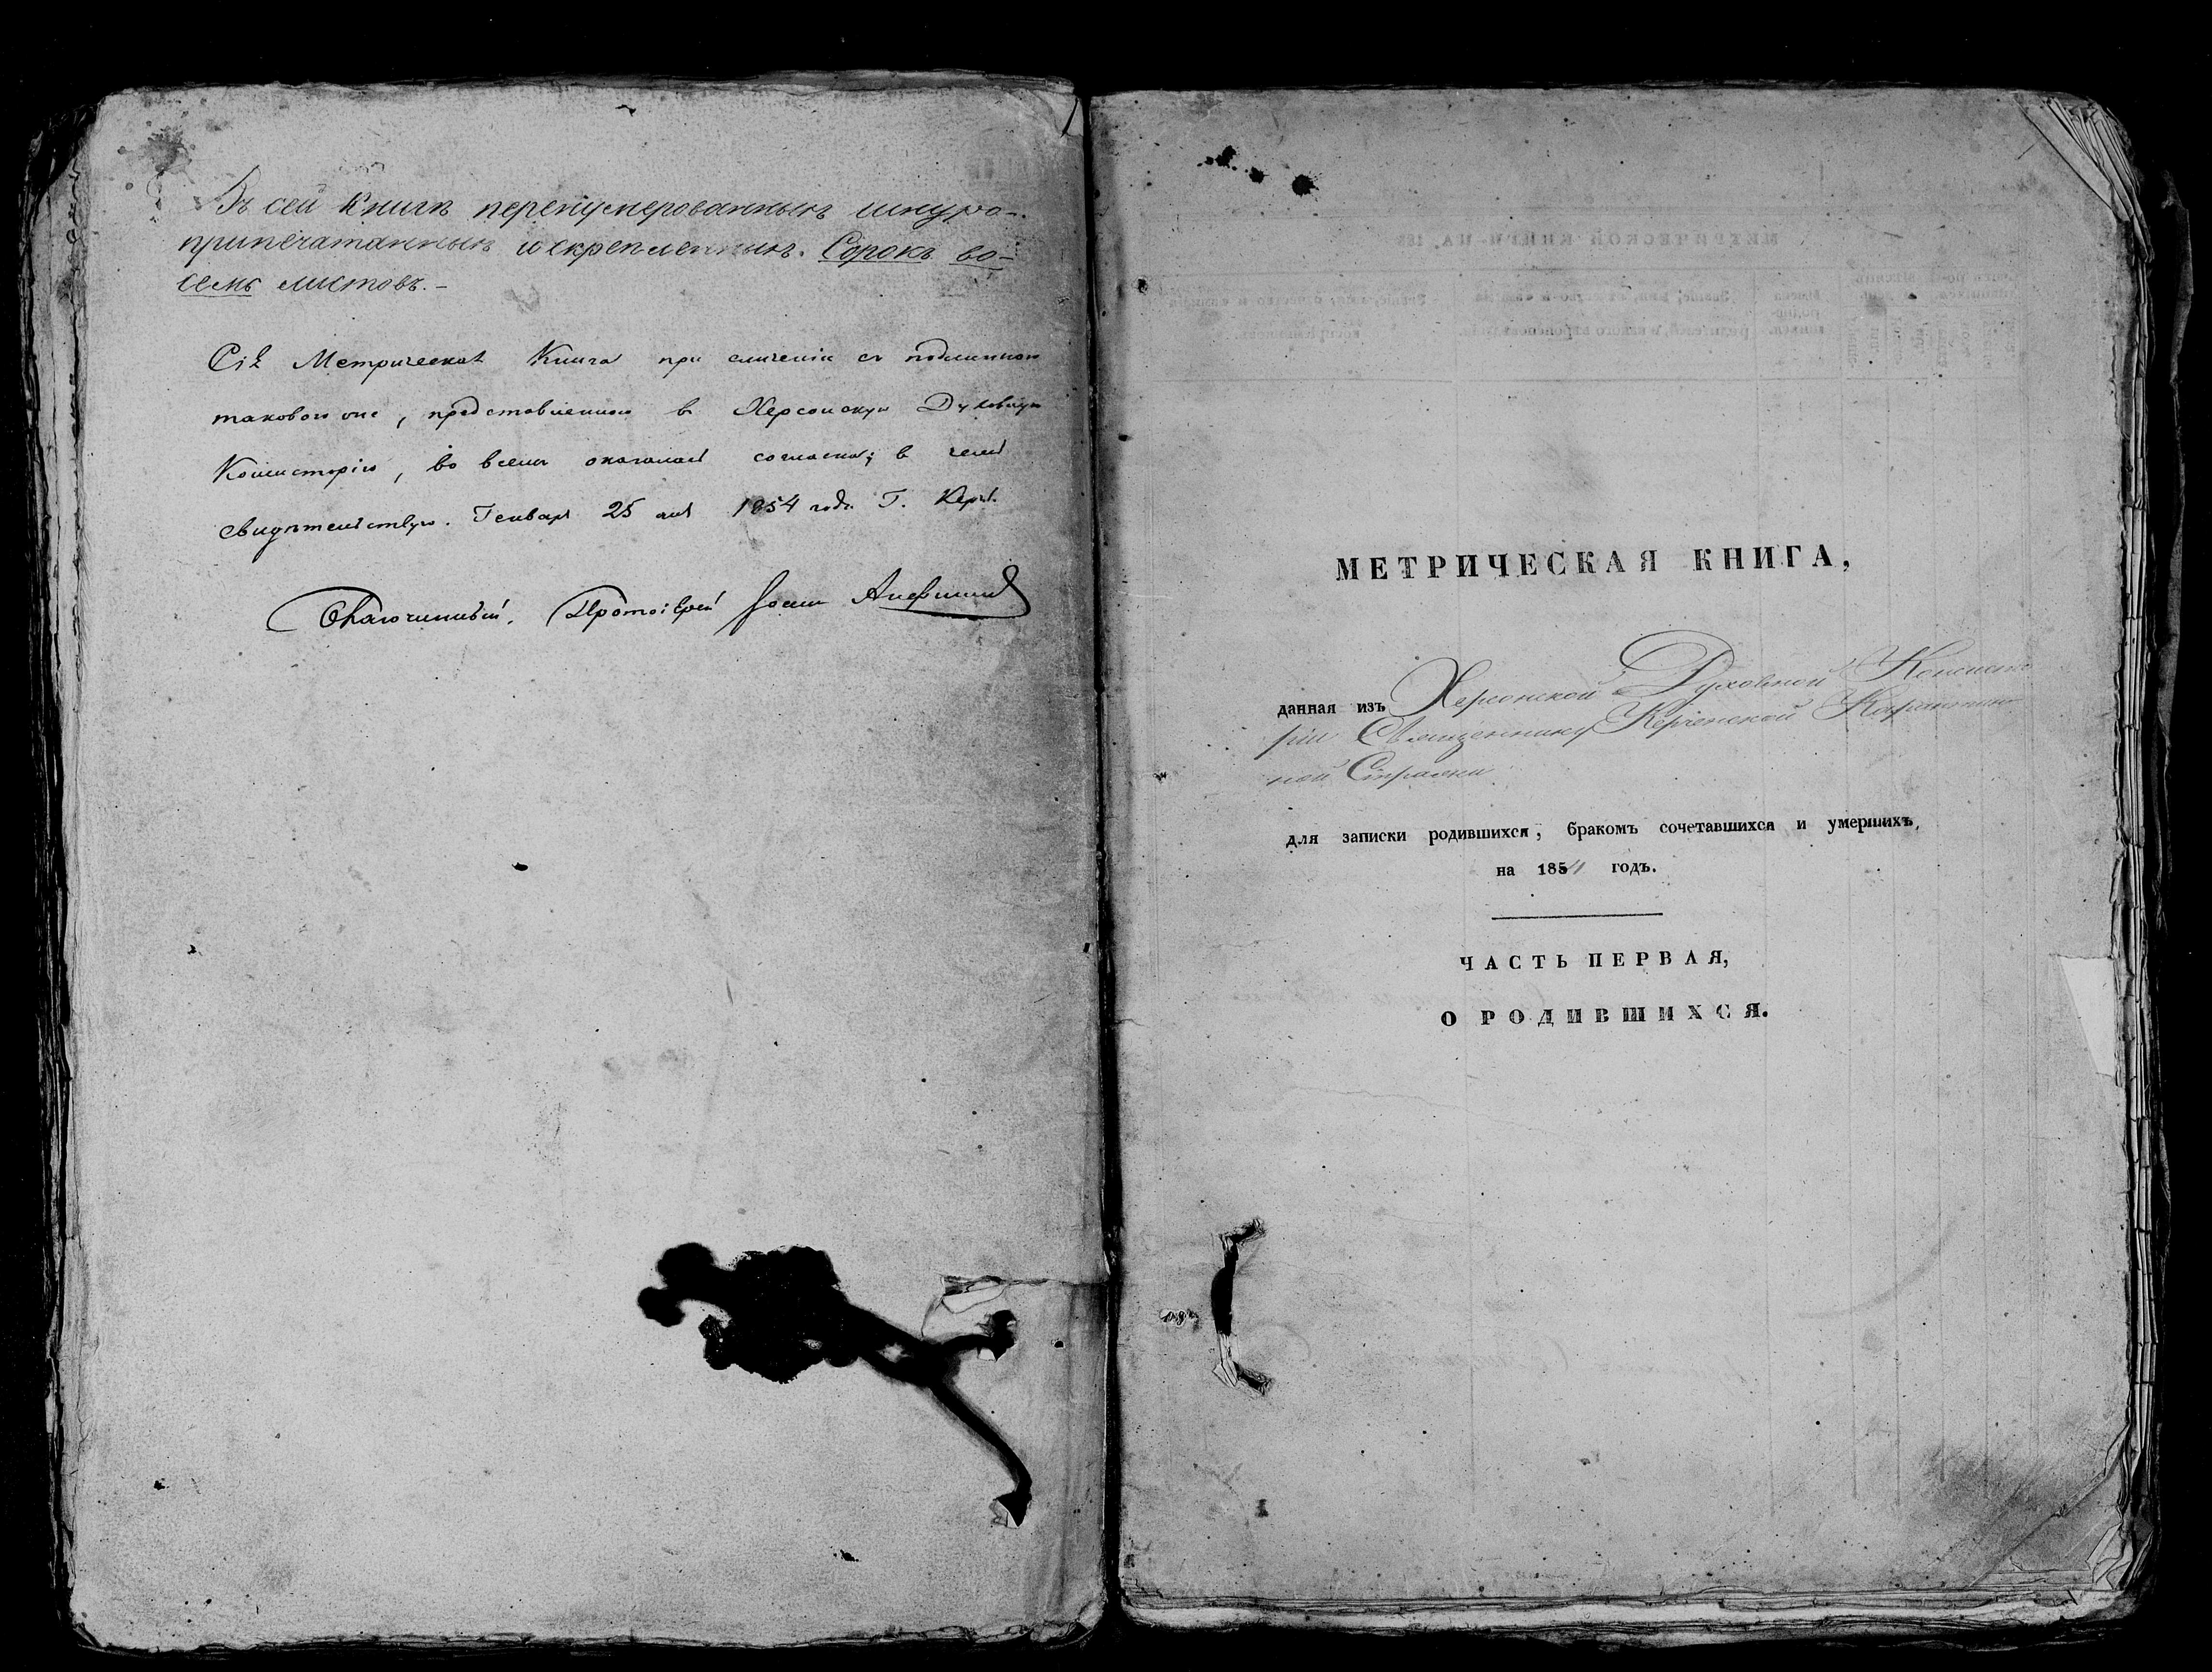 Въ сей книгѣ перенумерованныхъ шнуро-
припечатанныхъ и скрепленныхъ. Сорокъ во-
семь листовъ.-
Сія Метрическая Книга при сличеніи съ подлинною
таковою же, представленною в Херсонскую Духовную
Консисторію, во всемъ оказалась согласна; в чемъ
свидѣтельствую. Генваря 25 дня 1854 года Г. Керчь.
Благочинный, Протоіерей Іоаннъ
МЕТРИЧЕСКАЯ КНИГА,
данная изъ Херсонской Духовной Консисто
ріи Священнику Керченской Карантин
ной Стражи
для записки родившихся, бракомъ сочетавшихся и умершихъ,
на 185 годъ.
ЧАСТЬ ПЕРВАЯ,
О РОДИВШИХСЯ.